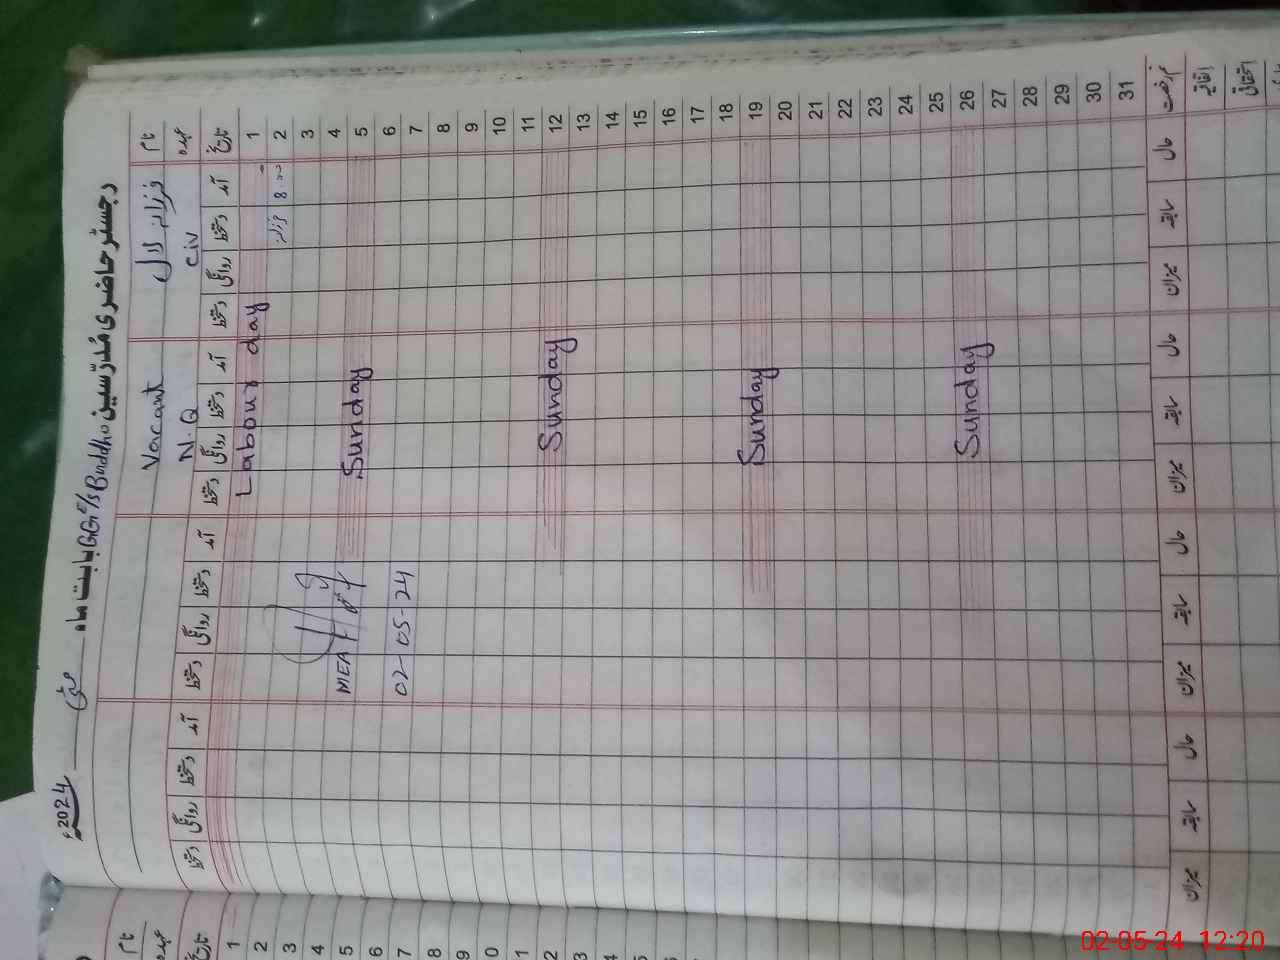 رجسٹر حاضری مُدرّسین GGE/S Buddho بابت ماہ مئی 2024ء
نام فرزانہ لال Vacant
عہدہ CIV N.Q
تاریخ آمد دستخط روانگی دستخط آمد دستخط روانگی دستخط آمد دستخط روانگی دستخط آمد دستخط روانگی دستخط
1 Labour day
2 8:00 فرزانہ
3
4
5 Sunday
MEA
6
02-05-24
7
8
9
10
11
12 Sunday
13
14
15
16
17
18
19 Sunday
20
21
22
23
24
25
26 Sunday
27
28
29
30
31
حال سابقہ میزان حال سابقہ میزان حال سابقہ میزان حال سابقہ میزان
اتفاقیہ
استحقاقی
نام
عہدہ
تاریخ
1
2
3
4
5
6
7
8
9
0
1
2
3
4
5
02-05-24 12:20